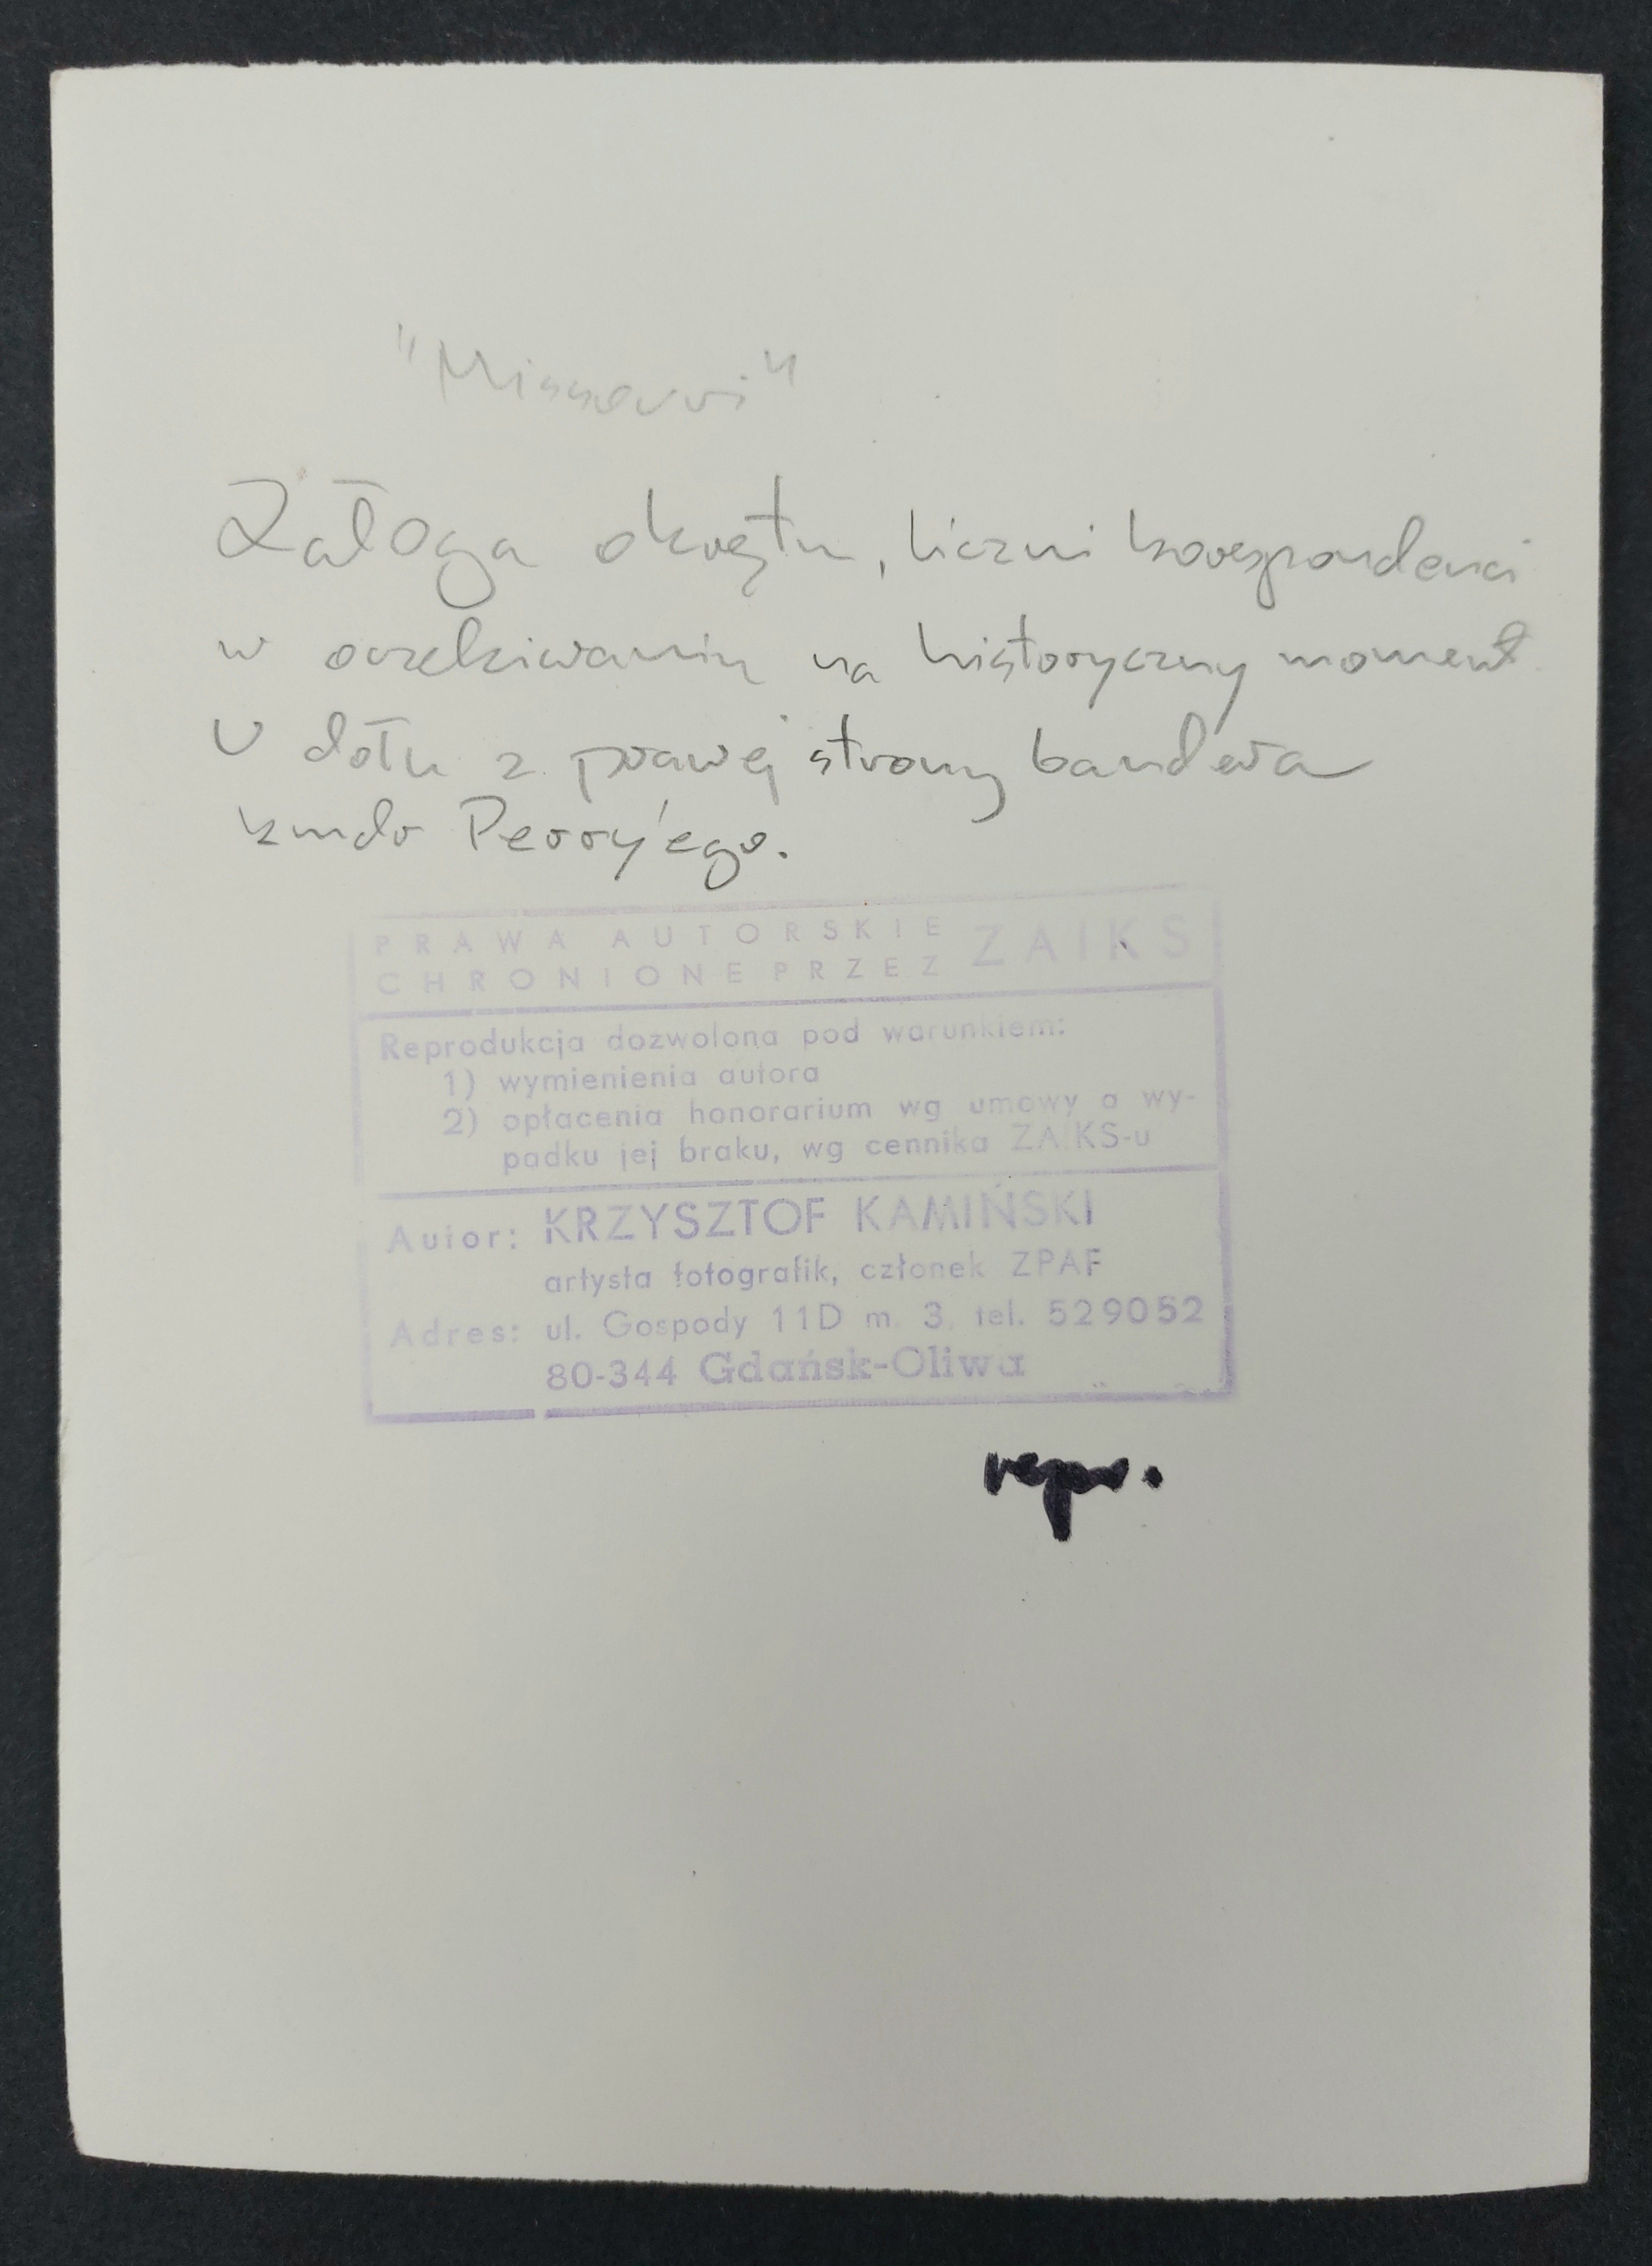 "Missouri"
Załoga okrętu, liczni korespondenci
w oczekiwaniu na historyczny moment.
U dołu z prawej strony bandera
kmdr Perry'ego.
PRAWA AUTORSKIE ZAIKS
CHRONIONE PRZEZ
Reprodukcja dozwolona pod warunkiem:
1) wymienienia autora
2) opłacenia honorarium wg umowy a wy-
padku jej braku, wg cennika ZAIKS-u
Autor: KRZYSZTOF KAMIŃSKI
artysta fotografik, członek ZPAF
Adres: ul. Gospody 11D m. 3, tel. 529052
80-344 Gdańsk-Oliwa
repr.